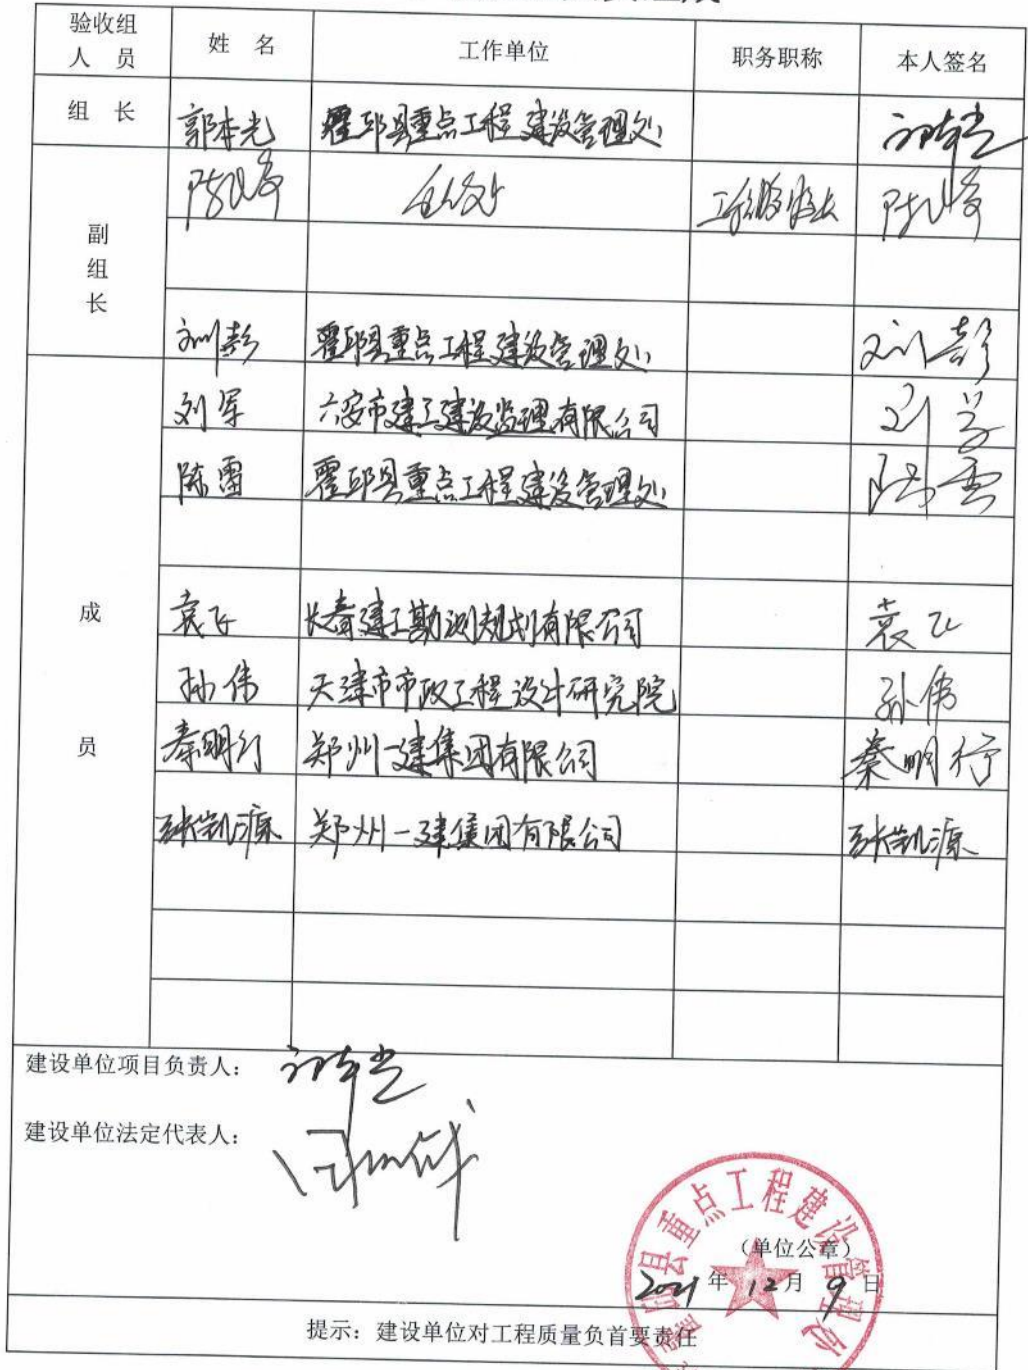 验收组
人 员
姓 名
工作单位
职务职称
本人签名
组 长
郭本光
霍邱县重点工程建设管理处
郭本光
副
组
长
刘彭
霍邱县重点工程建设管理处
刘彭
成
员
刘军
六安市建工建设监理有限公司
刘军
陈雷
霍邱县重点工程建设管理处
陈雷
袁飞
长春建工勘测规划有限公司
袁飞
孙伟
天津市市政工程设计研究院
孙伟
秦明行
郑州一建集团有限公司
秦明行
张凯源
郑州一建集团有限公司
张凯源
建设单位项目负责人: 郭本光
建设单位法定代表人:
霍邱县重点工程建设管理处
(单位公章)
2021年12月9日
提示: 建设单位对工程质量负首要责任